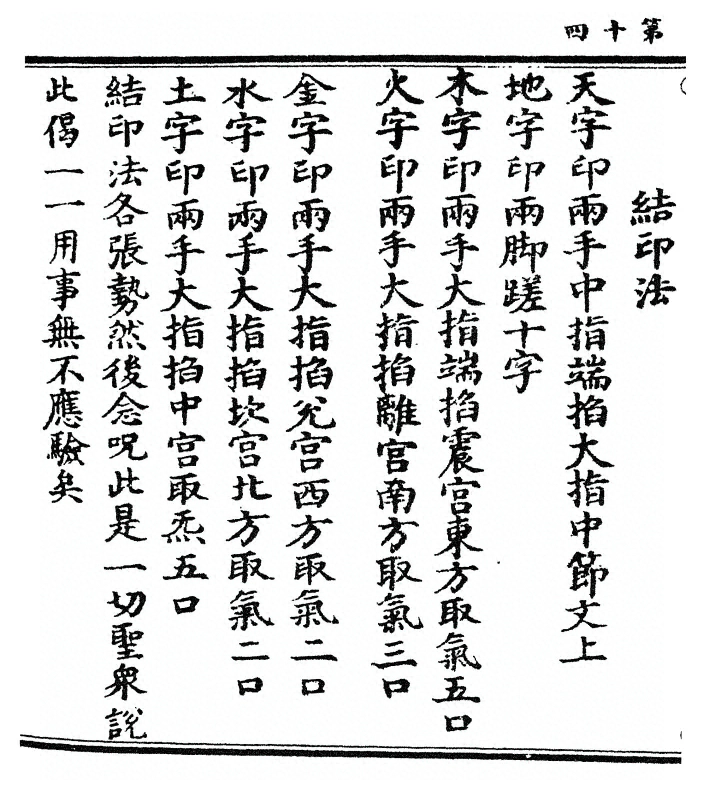 第十四
結印法
天字印兩手中指端掐大指中節文上
地字印兩脚蹉十字
木字印兩手大指端掐震宮東方取氣五口
火字印兩手大指掐離宮南方取氣三口
金字印兩手大指掐兊宮西方取氣二口
水字印兩手大指掐坎宮北方取氣二口
土字印兩手大指掐中宮取炁五口
結印法各張勢然後念呪此是一切聖衆說
此偈一一用事無不應驗矣